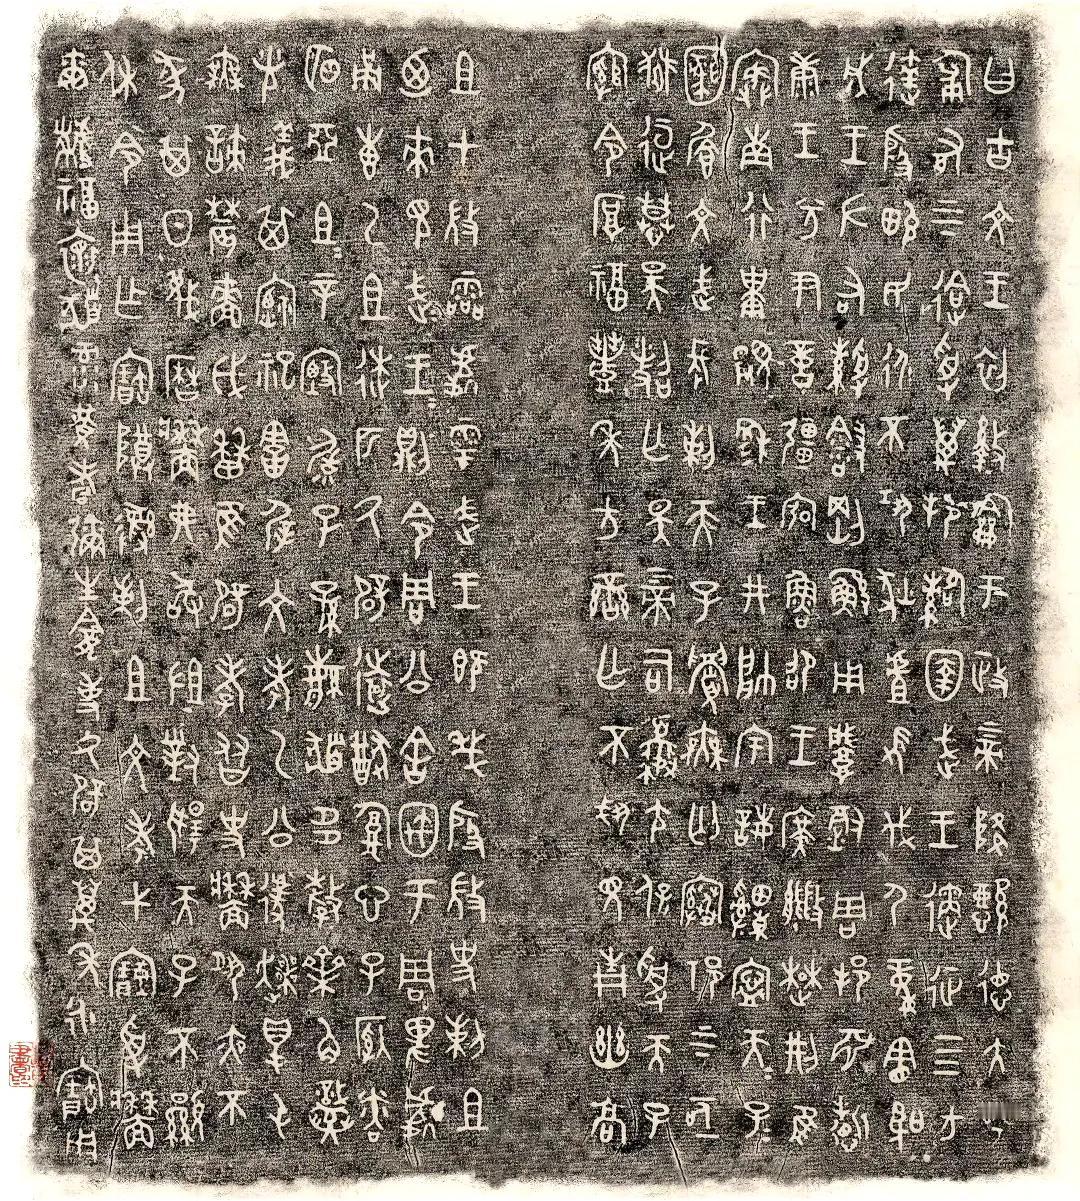 曰古文王初盭龢于政上帝降懿德大甹
匍有上下迨受萬邦圉武王遹征四方
達殷畯民永不巩狄虘髟伐尸童憲聖
成王左右綬剛鯀用肇徹周邦淵哲
康王兮尹億疆宏魯卲王廣楚荊隹
狩南行祗顯穆王井帥宇誨申寧天子
圉文武長剌天子眉無匄搴祁上下
亟獄宣慕昊照亡斁上帝司夒尢保受天子
綰令厚福豐年方蠻亡不踝見青幽高
且才微霝處雩武王既殷微史剌且
廼來見武王則令周公舍宇于周卑處
甬惠乙且逨匹厥辟遠猷腹心子納
粦明亞且辛甄毓子孫繁祓多釐齊角熾
光義其禋祀害屖文考乙公遽爽得屯
無諫農穡歲稼隹辟孝友史牆夙夜不
墜其日蔑曆牆弗敢沮對揚天子不顯
休令用乍寶尊彝剌且文考弋寶受牆
爾黸福懷祿黃耇彌生龕事厥辟其萬年永寶用